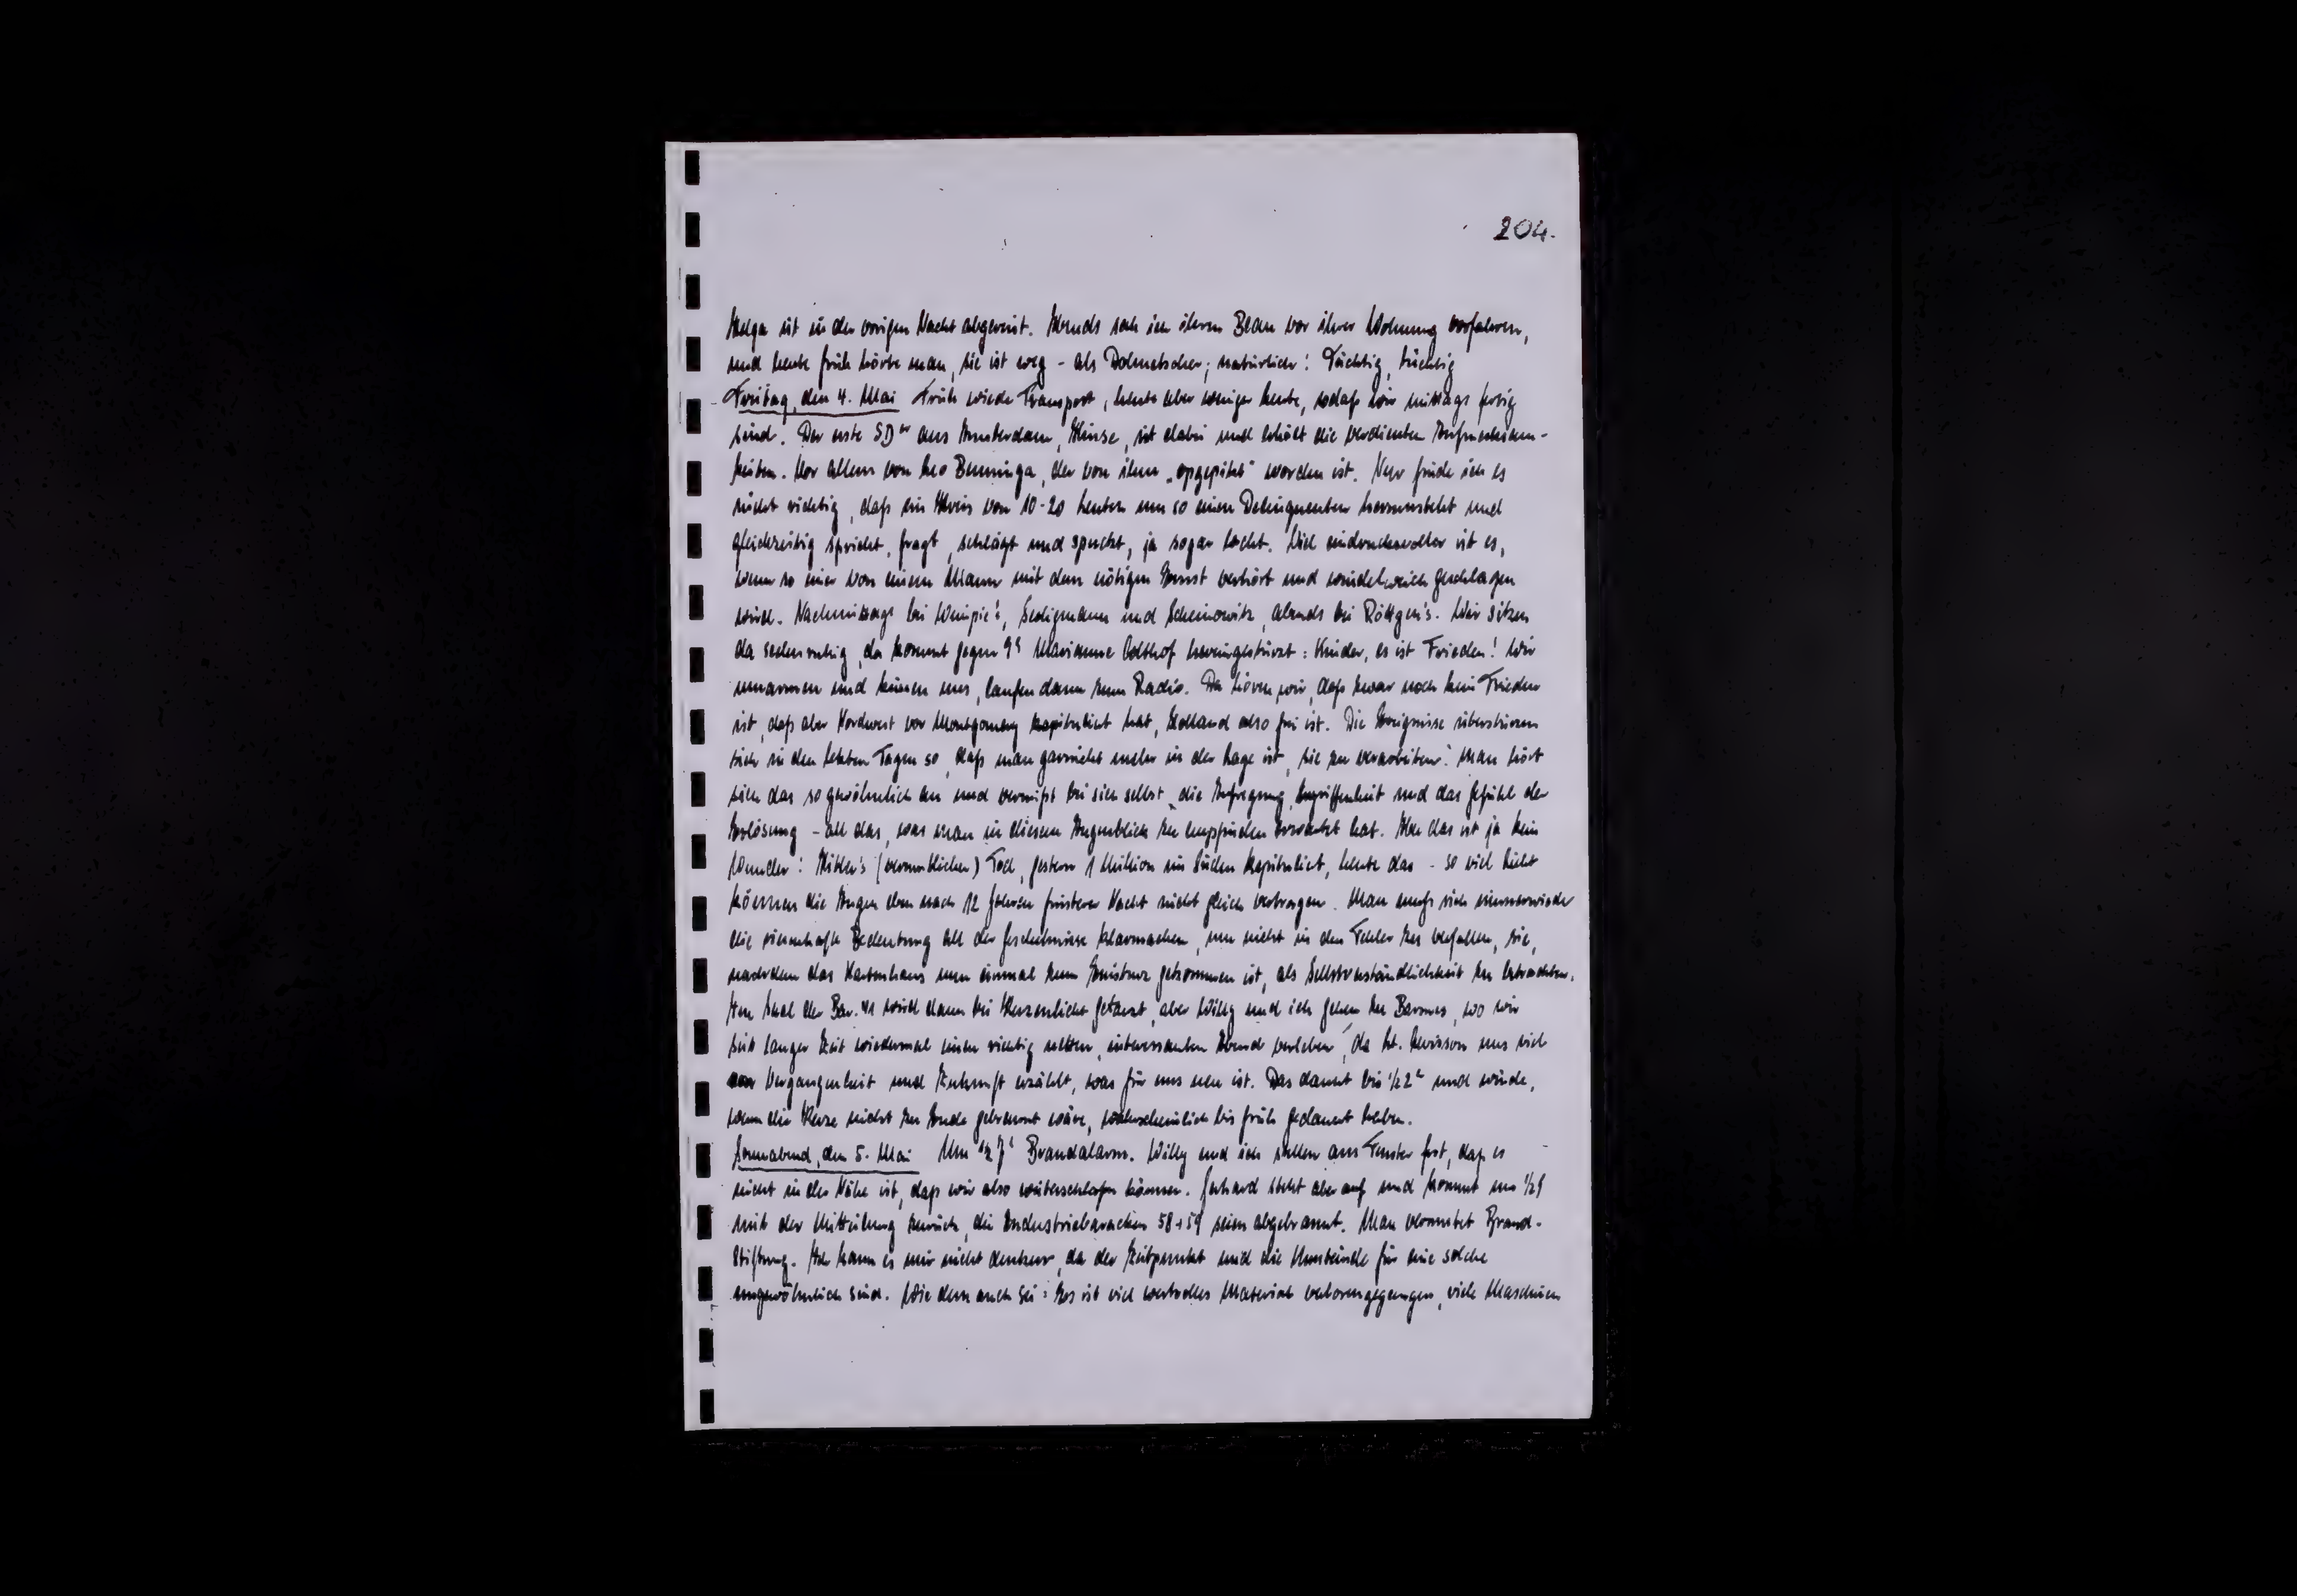 204.
Helga ist in der vorigen Nacht abgereist. Abends sah ich ihren Beau vor ihrer Wohnung vorfahren,
und heute früh hörte man, sie ist weg - als Dolmetscher; natürlich! Tüchtig, tüchtig
Freitag, den 4. Mai Früh wieder Transport, heute aber weniger Leute, sodaß wir mittags fertig
sind. Der erste SD er aus Amsterdam, ist dabei und erhält die verdienten Aufmerksam-
keiten. Vor allem von Leo Benninga, der von ihm „opgepikt" worden ist. Nur finde ich es
nicht richtig, daß ein Kreis von 10-20 Leuten um so einen Delinquenten herumsteht und
gleichzeitig spricht, fragt, schlägt und spuckt, ja sogar lacht. Viel eindrucksvoller ist es,
wenn so einer von einem Mann mit dem nötigen Ernst verhört und windelweich geschlagen
wird. Nachmittags bei Seligmann und Scheinowitz, abends bei Röttgen's. Wir sitzen
da seelenruhig, da kommt gegen 9h Marianne Odthof hereingestürzt: Kinder, es ist Frieden! Wir
umarmen und küssen uns, laufen dann zum Radio. Da hören wir, daß zwar noch kein Frieden
ist, daß aber Nordwest vor Montgomery kapituliert hat, Holland also frei ist. Die Ereignisse überstürzen
sich in den letzten Tagen so, daß man garnicht mehr in der Lage ist, sie zu verarbeiten. Man hört
sich das so gewöhnlich an und vermißt bei sich selbst die Aufregung, Ergriffenheit und das Gefühl der
Erlösung - all das, was man in diesem Augenblick zu empfinden erwartet hat. Aber das ist ja kein
Wunder: Hitler's (vermutlicher) Tod, gestern 1 Million im Süden kapituliert, heute das - so viel Licht
können die Augen eben nach 12 Jahren finsterer Nacht nicht gleich vertragen. Man muß sich immerwieder
die riesenhafte Bedeutung all der Geschehnisse klarmachen, um nicht in den Fehler zu verfallen, sie,
nachdem das Kartenhaus nun einmal zum Einsturz gekommen ist, als Selbstverständlichkeit zu betrachten.
Im Saal der Bar. 41 wird dann bei Kerzenlicht getanzt, aber Willy und ich gehen zu Barmes, wo wir
seit langer Zeit wiedermal einen richtig netten, interessanten Abend verleben, da Lt. Levisson uns viel
von Vergangenheit und Zukunft erzählt, was für uns neu ist. Das dauert bis 1/2 2h und würde,
wenn die Kerze nicht zu Ende gebrannt wäre, wahrscheinlich bis früh gedauert haben.
Sonnabend, den 5. Mai Um 1/2 7h Brandalarm. Willy und ich stellen am Fenster fest, daß es
nicht in der Nähe ist, daß wir also weiterschlafen können. Gerhard steht aber auf und kommt um 1/2 9
mit der Mitteilung zurück, die Industriebaracken 58+59 seien abgebrannt. Man vermutet Brand-
stiftung. Ich kann es mir nicht denken, da der Zeitpunkt und die Umstände für eine solche
ungewöhnlich sind. Wie dem auch sei: Es ist viel wertvolles Material verlorengegangen, viele Maschinen